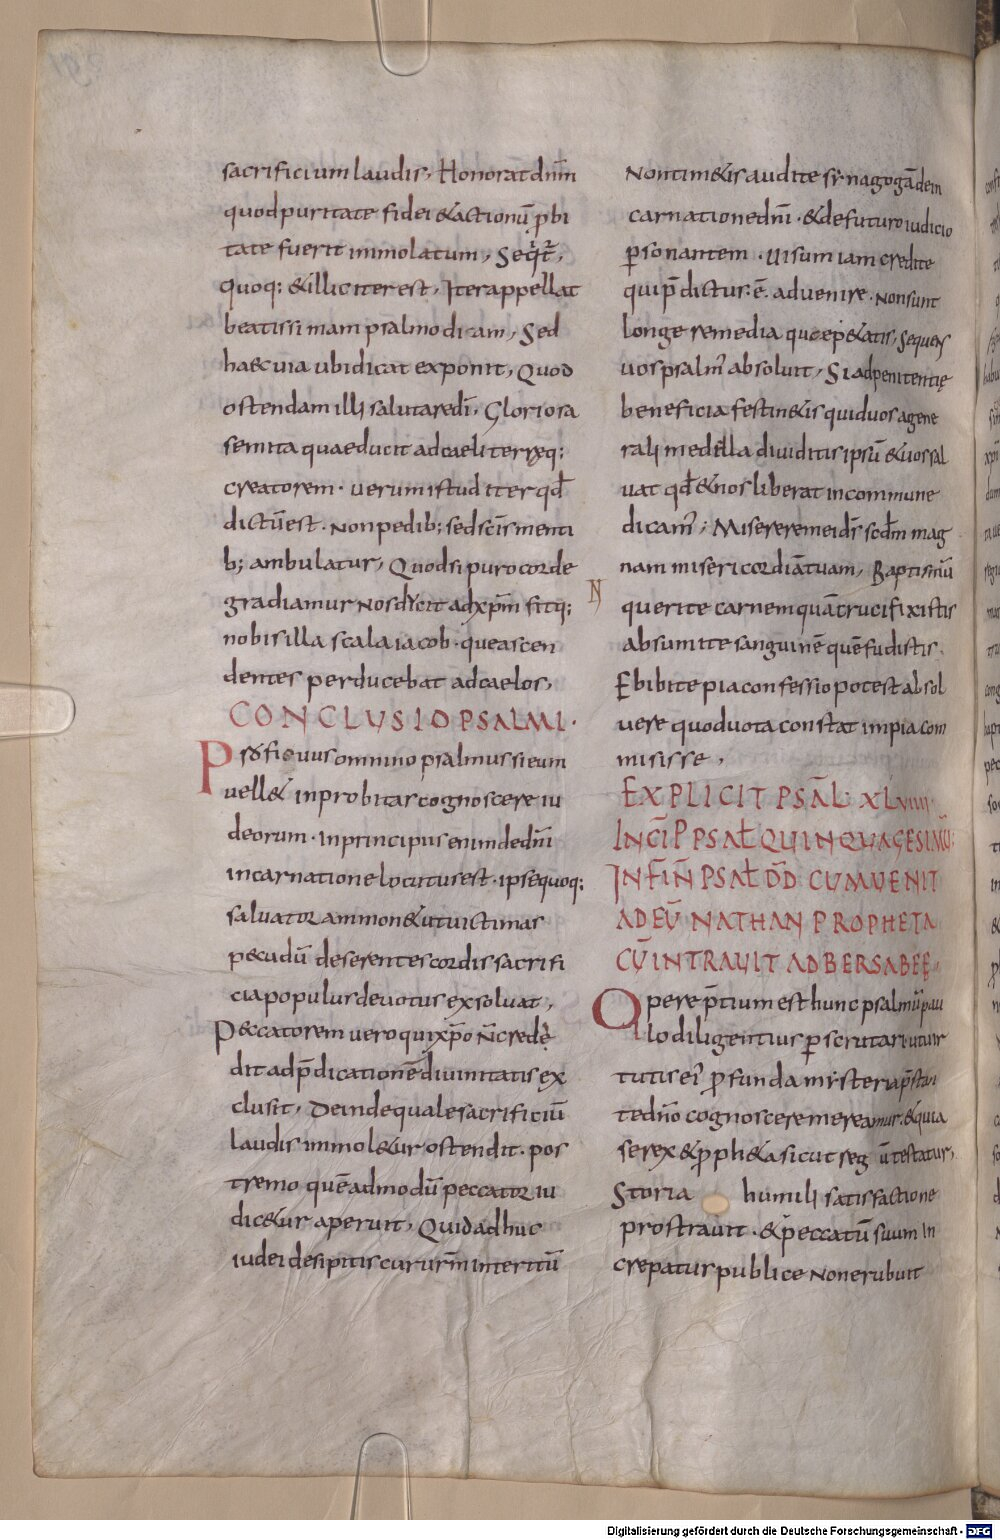 sacrificium laudis, Honorat dn̄m
quod puritate fidei & actionū p̱bi
tate fuerit immolatum, Seqit̄,
quoq: & illic iter est, Iter appellat
beatissimam psalmodiam, Sed
haec uia ubi dicat exponit, Quod
ostendam illi salutare dī, Gloriosa
semita quae ducit ad caeli terręq:
creatorem · uerum istud iter qđ
dictū est · Non pedib; sed sc̄is menti
b; ambulatur, Quod si puro corde
gradiamur nos dycit ad xp̄m fitq;
nobis illa scala iacob · que ascen
dentes perducebat ad caelos,
CONCLUSIO PSALMI ·
Proficuus omnino psalmus si eum
uell& inprobitas cognoscere iu
deorum · in principiis enim de dn̄i
incarnatione locutus est · ipse quoq;
saluator ammon& ut uictimas
pecudū deserentes cordis sacrifi
cia populus deuotus exsoluat,
Peccatorem uero qui xp̄o n̄ crede
dit ad p̄dicationē diuinitatis ex
clusit, Deinde quale sacrificiū
laudis immol&ur ostendit · pos
tremo quē admodū peccator iu
dic&ur aperuit, Quid adhuc
iudei desipitis cur ur̄m interitū
Non tim&is audite synagogā de in
carnatione dn̄i · & de futuro iudicio
p̱sonantem · uisum iam credite
qui p̄dictus ē · aduenire · Non sunt
longe remedia que p&atis, Sequens
uos psalm̄ absoluit, Si ad penitentię
beneficia festin&is qui duos a gene
rali medella diuiditis ipsū & uos sal
uat qđ & nos liberat in commune
dicam̄; Miserere mei ds̄ scd̄m mag
nam misericordiā tuam, Baptismū
querite carnem quā crucifixistis
absumite sanguinē quē fudistis ·
Ebibite pia confessio potest absol
uere quod uota constat impia com
misisse ,
EXPLICIT PSĀL· XLVIIII·
INCĪP PSAŁ QUINQUAGESIMŪ:
IN FIN̄ PSAŁ DD̄ CUM UENIT
AD EŪ NATHAN PROPHETA
CŪ INTRAUIT AD BERSABEĘ·
Opere p̄tium est hunc psalmū pau
lo diligentius p̱scrutari ut uir
tutis ei' p̱funda mysteria p̄stan
te dn̄o cognoscere mereamur · & quia
se rex & p̱ph&a sicut reg ū testatur,
Storia humili satisfactione
prostrauit · & peccatū suum in
crepatus publice non erubuit
N
Digitalisierung gefördert durch die Deutsche Forschungsgemeinschaft - DFG